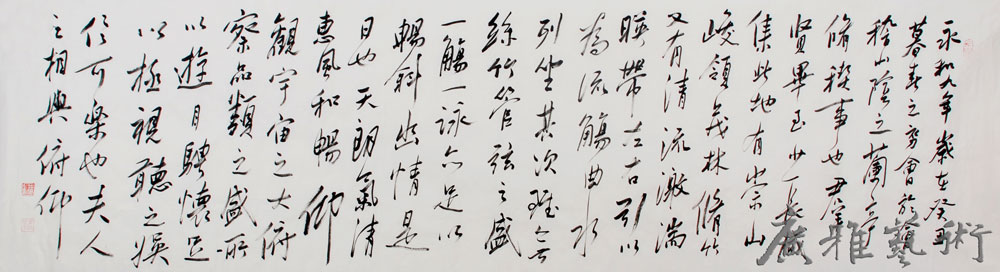 永和九年歲在癸丑
暮春之初會於會
稽山陰之蘭亭
脩稧事也羣
賢畢至少長咸
集此地有崇山
峻領茂林脩竹
又有清流激湍
暎帶左右引以
為流觴曲水
列坐其次雖無
絲竹管弦之盛
一觴一詠亦足以
暢敘幽情是
日也天朗氣清
惠風和暢仰
觀宇宙之大俯
察品類之盛所
以遊目騁懷足
以極視聽之娛
信可樂也夫人
之相與俯仰
雅藝術